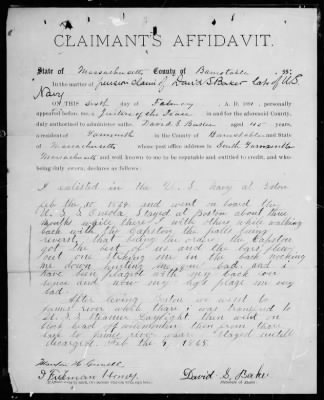 CLAIMANT'S AFFIDAVIT.
State of Massachusetts County of Barnstable, ss:
In the matter of pension claim of David S Baker late of U.S.
Navy
ON THIS sixth day of February, A. D. 189, personally
appeared before me a Justice of the Peace in and for the aforesaid County,
duly authorized to administer oaths, David S Baker aged 45 years,
a resident of Yarmouth in the County of Barnstable and State
of Massachusetts whose post office address is South Yarmouth
Massachusetts and well known to me to be reputable and entitled to credit, and who
being duly sworn, declares as follows:
I enlisted in the U. S. Navy at Boston
Feb the 1864 and went on board the
U. S. S. Stayed at Boston about three
months while there I with others while walking
back with the Capston the palls being
reverst that being the order the Capston
got the best of us and the bars flew
out one striking me in the back nocking
me down hurting me very bad, and i
have ben plagued with my back ever
sence and now my plage me very
bad.
After leving Boston we went to
James river while there i was transfered to
U. S. S. Steamer Daylight then went on
block back of then from there
back to James river were i stayed untill
discarged, Feb the 9, 1865.
David S. Baker